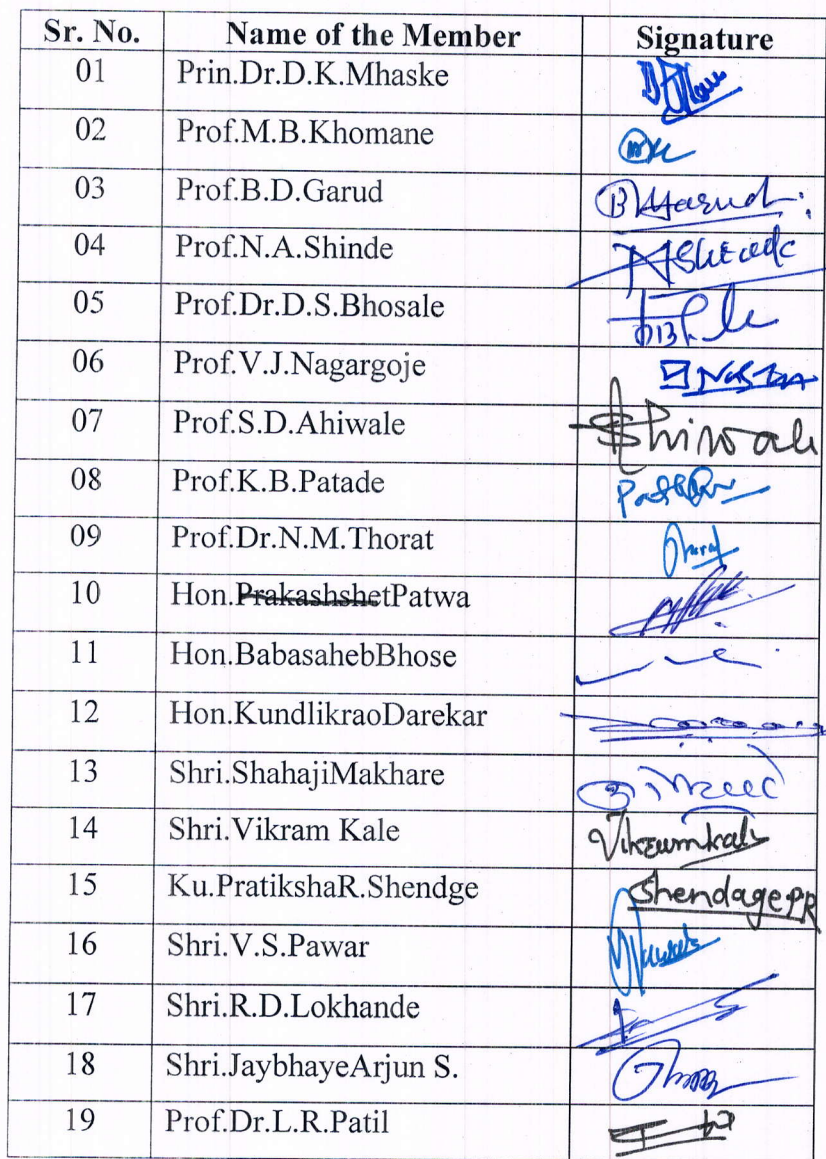 Sr. No. Name of the Member Signature
01 Prin.Dr.D.K.Mhaske
02 Prof.M.B.Khomane
03 Prof.B.D.Garud
04 Prof.N.A.Shinde
05 Prof.Dr.D.S.Bhosale
06 Prof.V.J.Nagargoje
07 Prof.S.D.Ahiwale
08 Prof.K.B.Patade
09 Prof.Dr.N.M.Thorat
10 Hon.PrakashshetPatwa
11 Hon.BabasahebBhose
12 Hon.KundlikraoDarekar
13 Shri.ShahajiMakhare
14 Shri.Vikram Kale
15 Ku.PratikshaR.Shendge Shendage PR
16 Shri.V.S.Pawar
17 Shri.R.D.Lokhande
18 Shri.JaybhayeArjun S.
19 Prof.Dr.L.R.Patil